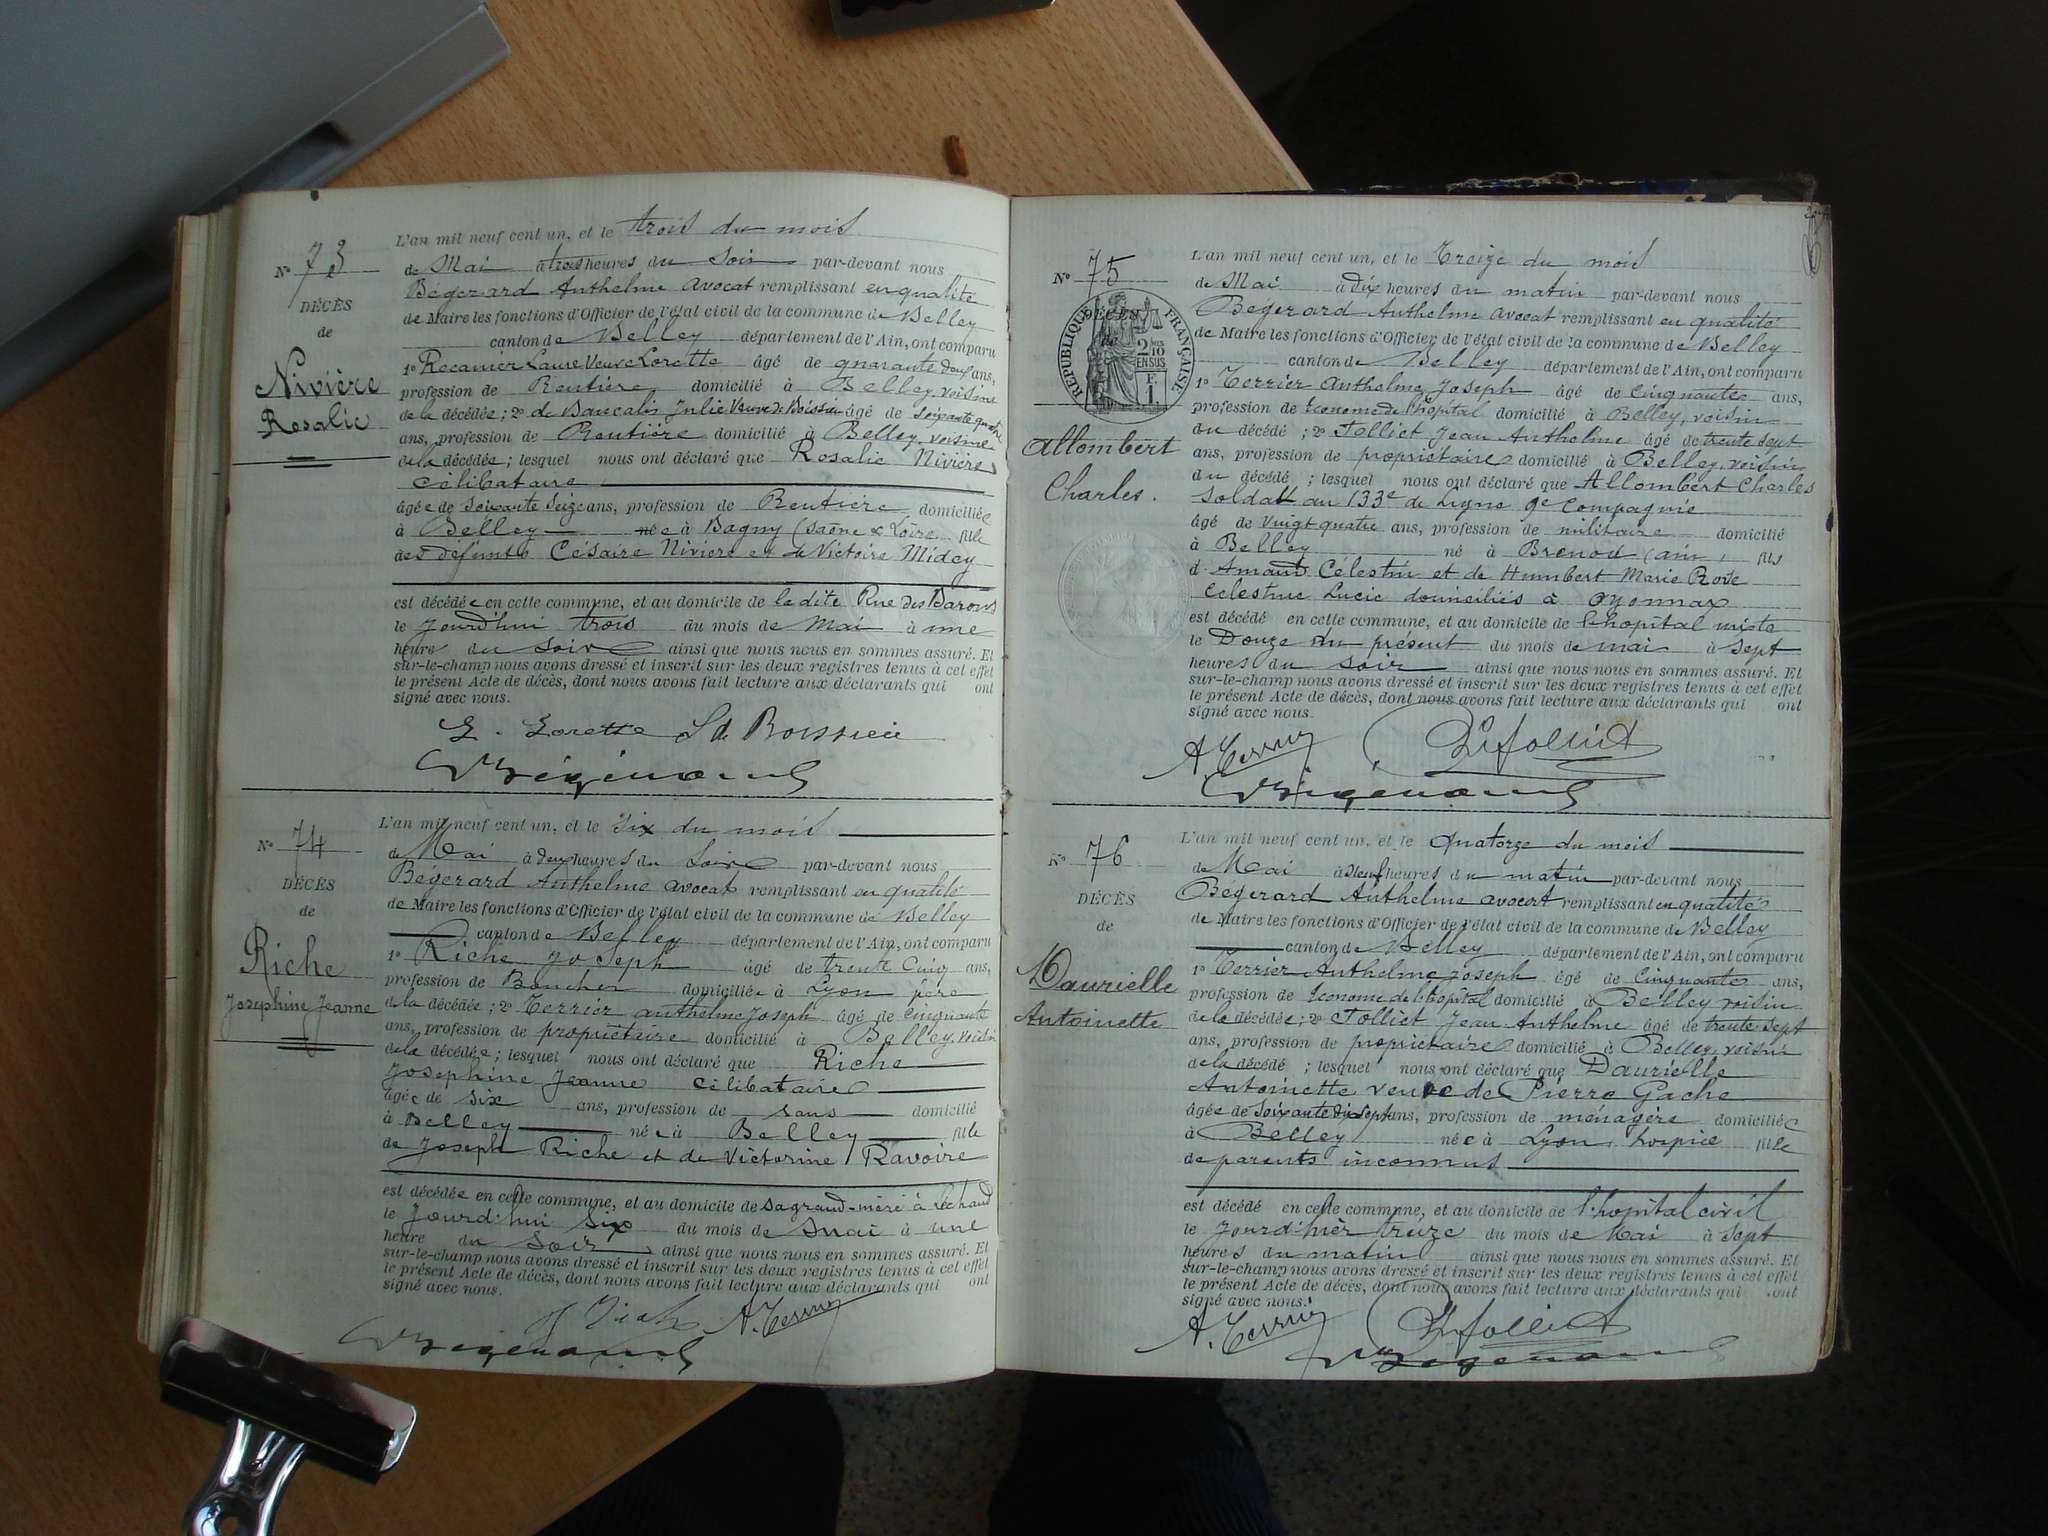 N° 73
DÉCÈS
de
Nivière
Rosalie
L'an mil neuf cent un, et le trois du mois
de Mai à trois heures du Soir par-devant nous
Bégerard Anthelme avocat remplissant en qualité
de Maire les fonctions d'Officier de l'état civil de la commune de Belley
canton de Belley département de l'Ain, ont comparu
1° Recamier Laure Veuve Lorette âgé de quarante deux ans,
profession de Rentière domicilié à Belley, voisine
de la décédée; 2° de Julie Veuve de Boissieu âgé de soixante quatre
ans, profession de Rentière domicilié à Belley, voisine
de la décédée; lesquel nous ont déclaré que Rosalie Nivière
Célibataire
âgée de soixante seize ans, profession de Rentière domiciliée
à Belley née à Bagny (Saône & Loire fille
des défunts Césaire Nivière et de Victoire Midey
est décédée en cette commune, et au domicile de la dite Rue des Barons
le jourd'hui trois du mois de Mai à une
heure du Soir ainsi que nous nous en sommes assuré. Et
sur-le-champ nous avons dressé et inscrit sur les deux registres tenus à cet effet
le présent Acte de décès, dont nous avons fait lecture aux déclarants qui ont
signé avec nous.
L. Lorette S de Boissieu
Bégerard
N° 74
DÉCÈS
de
Riche
Josephine Jeanne
L'an mil neuf cent un, et le six du mois
de Mai à deux heures du Soir par-devant nous
Bégerard Anthelme avocat remplissant en qualité
de Maire les fonctions d'Officier de l'état civil de la commune de Belley
canton de Belley département de l'Ain, ont comparu
1° Riche Joseph âgé de trente cinq ans,
profession de Boucher domicilié à Lyon père
de la décédée; 2° Terrier anthelme Joseph âgé de cinquante
ans, profession de propriétaire domicilié à Belley, voisin
de la décédée; lesquel nous ont déclaré que Riche
Josephine Jeanne célibataire
âgée de six ans, profession de sans domicilié
à Belley née à Belley fille
de Joseph Riche et de Victorine Ravoire
est décédée en cette commune, et au domicile de sa grand-mère à Lechaud
le jourd'hui six du mois de mai à une
heure du Soir ainsi que nous nous en sommes assuré. Et
sur-le-champ nous avons dressé et inscrit sur les deux registres tenus à cet effet
le présent Acte de décès, dont nous avons fait lecture aux déclarants qui ont
signé avec nous.
J Riche A. Terrier
Bégerard
N° 75
DÉCÈS
de
RÉPUBLIQUE FRANÇAISE
2/10 EN SUS
1 F.
Allombert
Charles.
L'an mil neuf cent un, et le Treize du mois
de Mai à dix heures du matin par-devant nous
Bégerard Anthelme avocat remplissant en qualité
de Maire les fonctions d'Officier de l'état civil de la commune de Belley
canton de Belley département de l'Ain, ont comparu
1° Terrier Anthelme Joseph âgé de cinquante ans,
profession de Econome de l'hôpital domicilié à Belley, voisin
du décédé; 2° Tolliet Jean Anthelme âgé de trente sept
ans, profession de propriétaire domicilié à Belley, voisin
du décédé; lesquel nous ont déclaré que Allombert Charles
Soldat au 133e de Ligne 9e Compagnie
âgé de vingt quatre ans, profession de militaire domicilié
à Belley né à Brenod (ain) fils
d'Amand Célestin et de Humbert Marie Rose
Celestine Lucie domiciliés à Oyonnax
est décédé en cette commune, et au domicile de l'hopital mixte
le Douze du présent du mois de mai à sept
heures du soir ainsi que nous nous en sommes assuré. Et
sur-le-champ nous avons dressé et inscrit sur les deux registres tenus à cet effet
le présent Acte de décès, dont nous avons fait lecture aux déclarants qui ont
signé avec nous.
A. Terrier Tolliet
Bégerard
N° 76
DÉCÈS
de
Daurielle
Antoinette
L'an mil neuf cent un, et le Quatorze du mois
de Mai à Neuf heures du matin par-devant nous
Bégerard Anthelme avocat remplissant en qualité
de Maire les fonctions d'Officier de l'état civil de la commune de Belley
canton de Belley département de l'Ain, ont comparu
1° Terrier Anthelme Joseph âgé de Cinquante ans,
profession de Econome de l'hôpital domicilié à Belley voisin
de la décédée; 2° Tolliet Jean Anthelme âgé de trente sept
ans, profession de propriétaire domicilié à Belley, voisin
de la décédé; lesquel nous ont déclaré que Daurielle
Antoinette veuve de Pierre Gache
âgée de soixante dix sept ans, profession de ménagère domiciliée
à Belley née à Lyon hospice fille
de parents inconnus
est décédé en cette commune, et au domicile de l'hopital civil
le jourd'hier treize du mois de Mai à sept
heures du matin ainsi que nous nous en sommes assuré. Et
sur-le-champ nous avons dressé et inscrit sur les deux registres tenus à cet effet
le présent Acte de décès, dont nous avons fait lecture aux déclarants qui ont
signé avec nous.
A. Terrier Tolliet
Bégerard